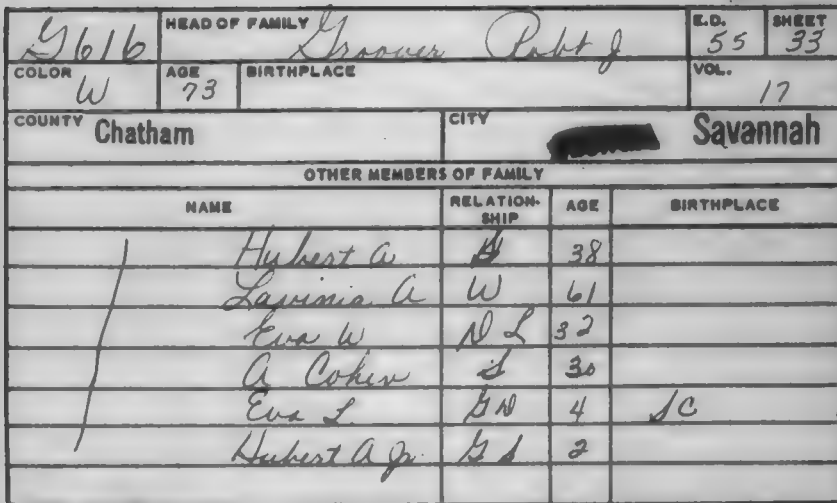 G616 HEAD OF FAMILY Groover Robt J E.D. 55 SHEET 33
COLOR W AGE 73 BIRTHPLACE VOL. 17
COUNTY Chatham CITY Savannah
OTHER MEMBERS OF FAMILY
NAME RELATION-SHIP AGE BIRTHPLACE
Hubert A S 38
Lavinia A W 61
Eva W D L 32
A Cohen S 30
Eva L. G D 4 S C
Hubert A Jr. G S 2